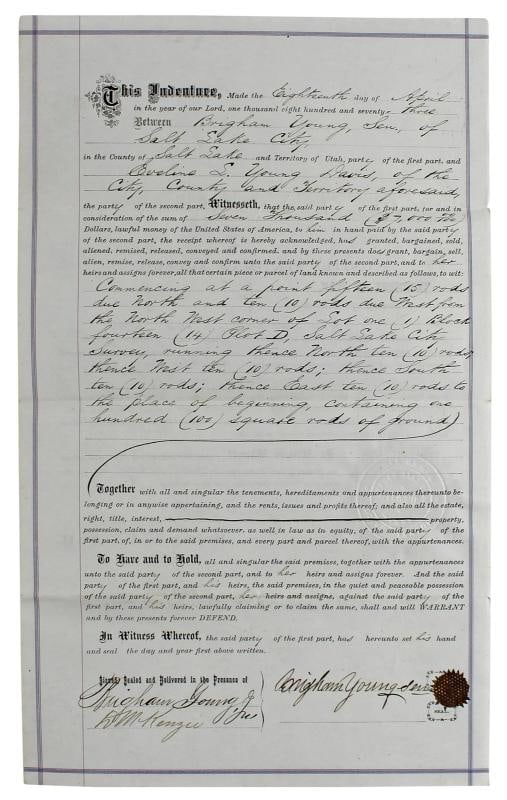 This Indenture, Made the Eighteenth day of April
in the year of our Lord, one thousand eight hundred and seventy-three
Between Brigham Young, Sen, of
Salt Lake City,
in the County of Salt Lake and Territory of Utah, party of the first part, and
Eveline L. Young Davis, of the
City, County and Territory aforesaid,
the party of the second part, Witnesseth, that the said party of the first part, for and in
consideration of the sum of Seven Thousand ($7,000
Dollars, lawful money of the United States of America, to him in hand paid by the said party
of the second part, the receipt whereof is hereby acknowledged, has granted, bargained, sold,
aliened, remised, released, conveyed and confirmed, and by these presents does grant, bargain, sell,
alien, remise, release, convey and confirm unto the said party of the second part, and to her
heirs and assigns forever, all that certain piece or parcel of land known and described as follows, to wit:
Commencing at a point fifteen (15) rods
due North and ten (10) rods due West from
the North West corner of Lot one (1) Block
fourteen (14) Plot D, Salt Lake City
Survey, running thence North ten (10) rods,
thence West ten (10) rods; thence South
ten (10) rods; thence East ten (10) rods to
the place of beginning, containing one
hundred (100) square rods of ground)
Together with all and singular the tenements, hereditaments and appurtenances thereunto be-
longing or in anywise appertaining, and the rents, issues and profits thereof; and also all the estate,
right, title, interest, property,
possession, claim and demand whatsoever, as well in law as in equity, of the said party of the
first part, of, in or to the said premises, and every part and parcel thereof, with the appurtenances.
To Have and to Hold, all and singular the said premises, together with the appurtenances
unto the said party of the second part, and to her heirs and assigns forever. And the said
party of the first part, and his heirs, the said premises, in the quiet and peaceable possession
of the said party of the second part, her heirs and assigns, against the said party of the
first part, and his heirs, lawfully claiming or to claim the same, shall and will WARRANT
and by these presents forever DEFEND.
In Witness Whereof, the said party of the first part, has hereunto set his hand
and seal the day and year first above written.
Signed, Sealed and Delivered in the Presence of
Brigham Young Jr
Brigham Young Sen
McKenzie
SEAL